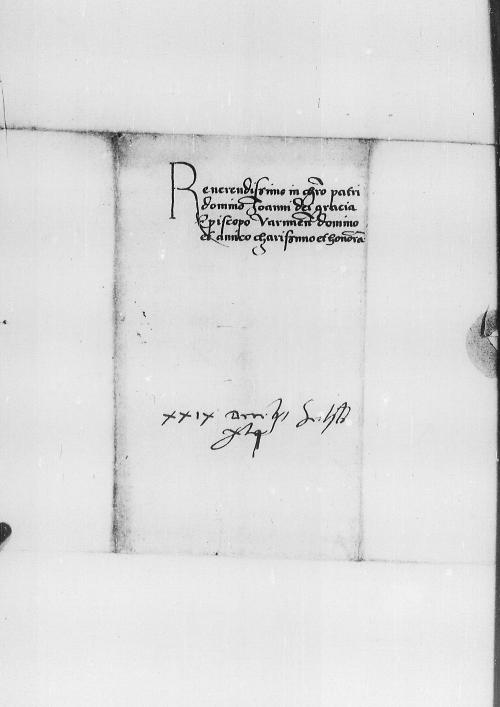 Reverendissimo in chro patri
domino Joanni dei gracia
Episcopo Varmien domino
et amico charissimo et honora
XXIX